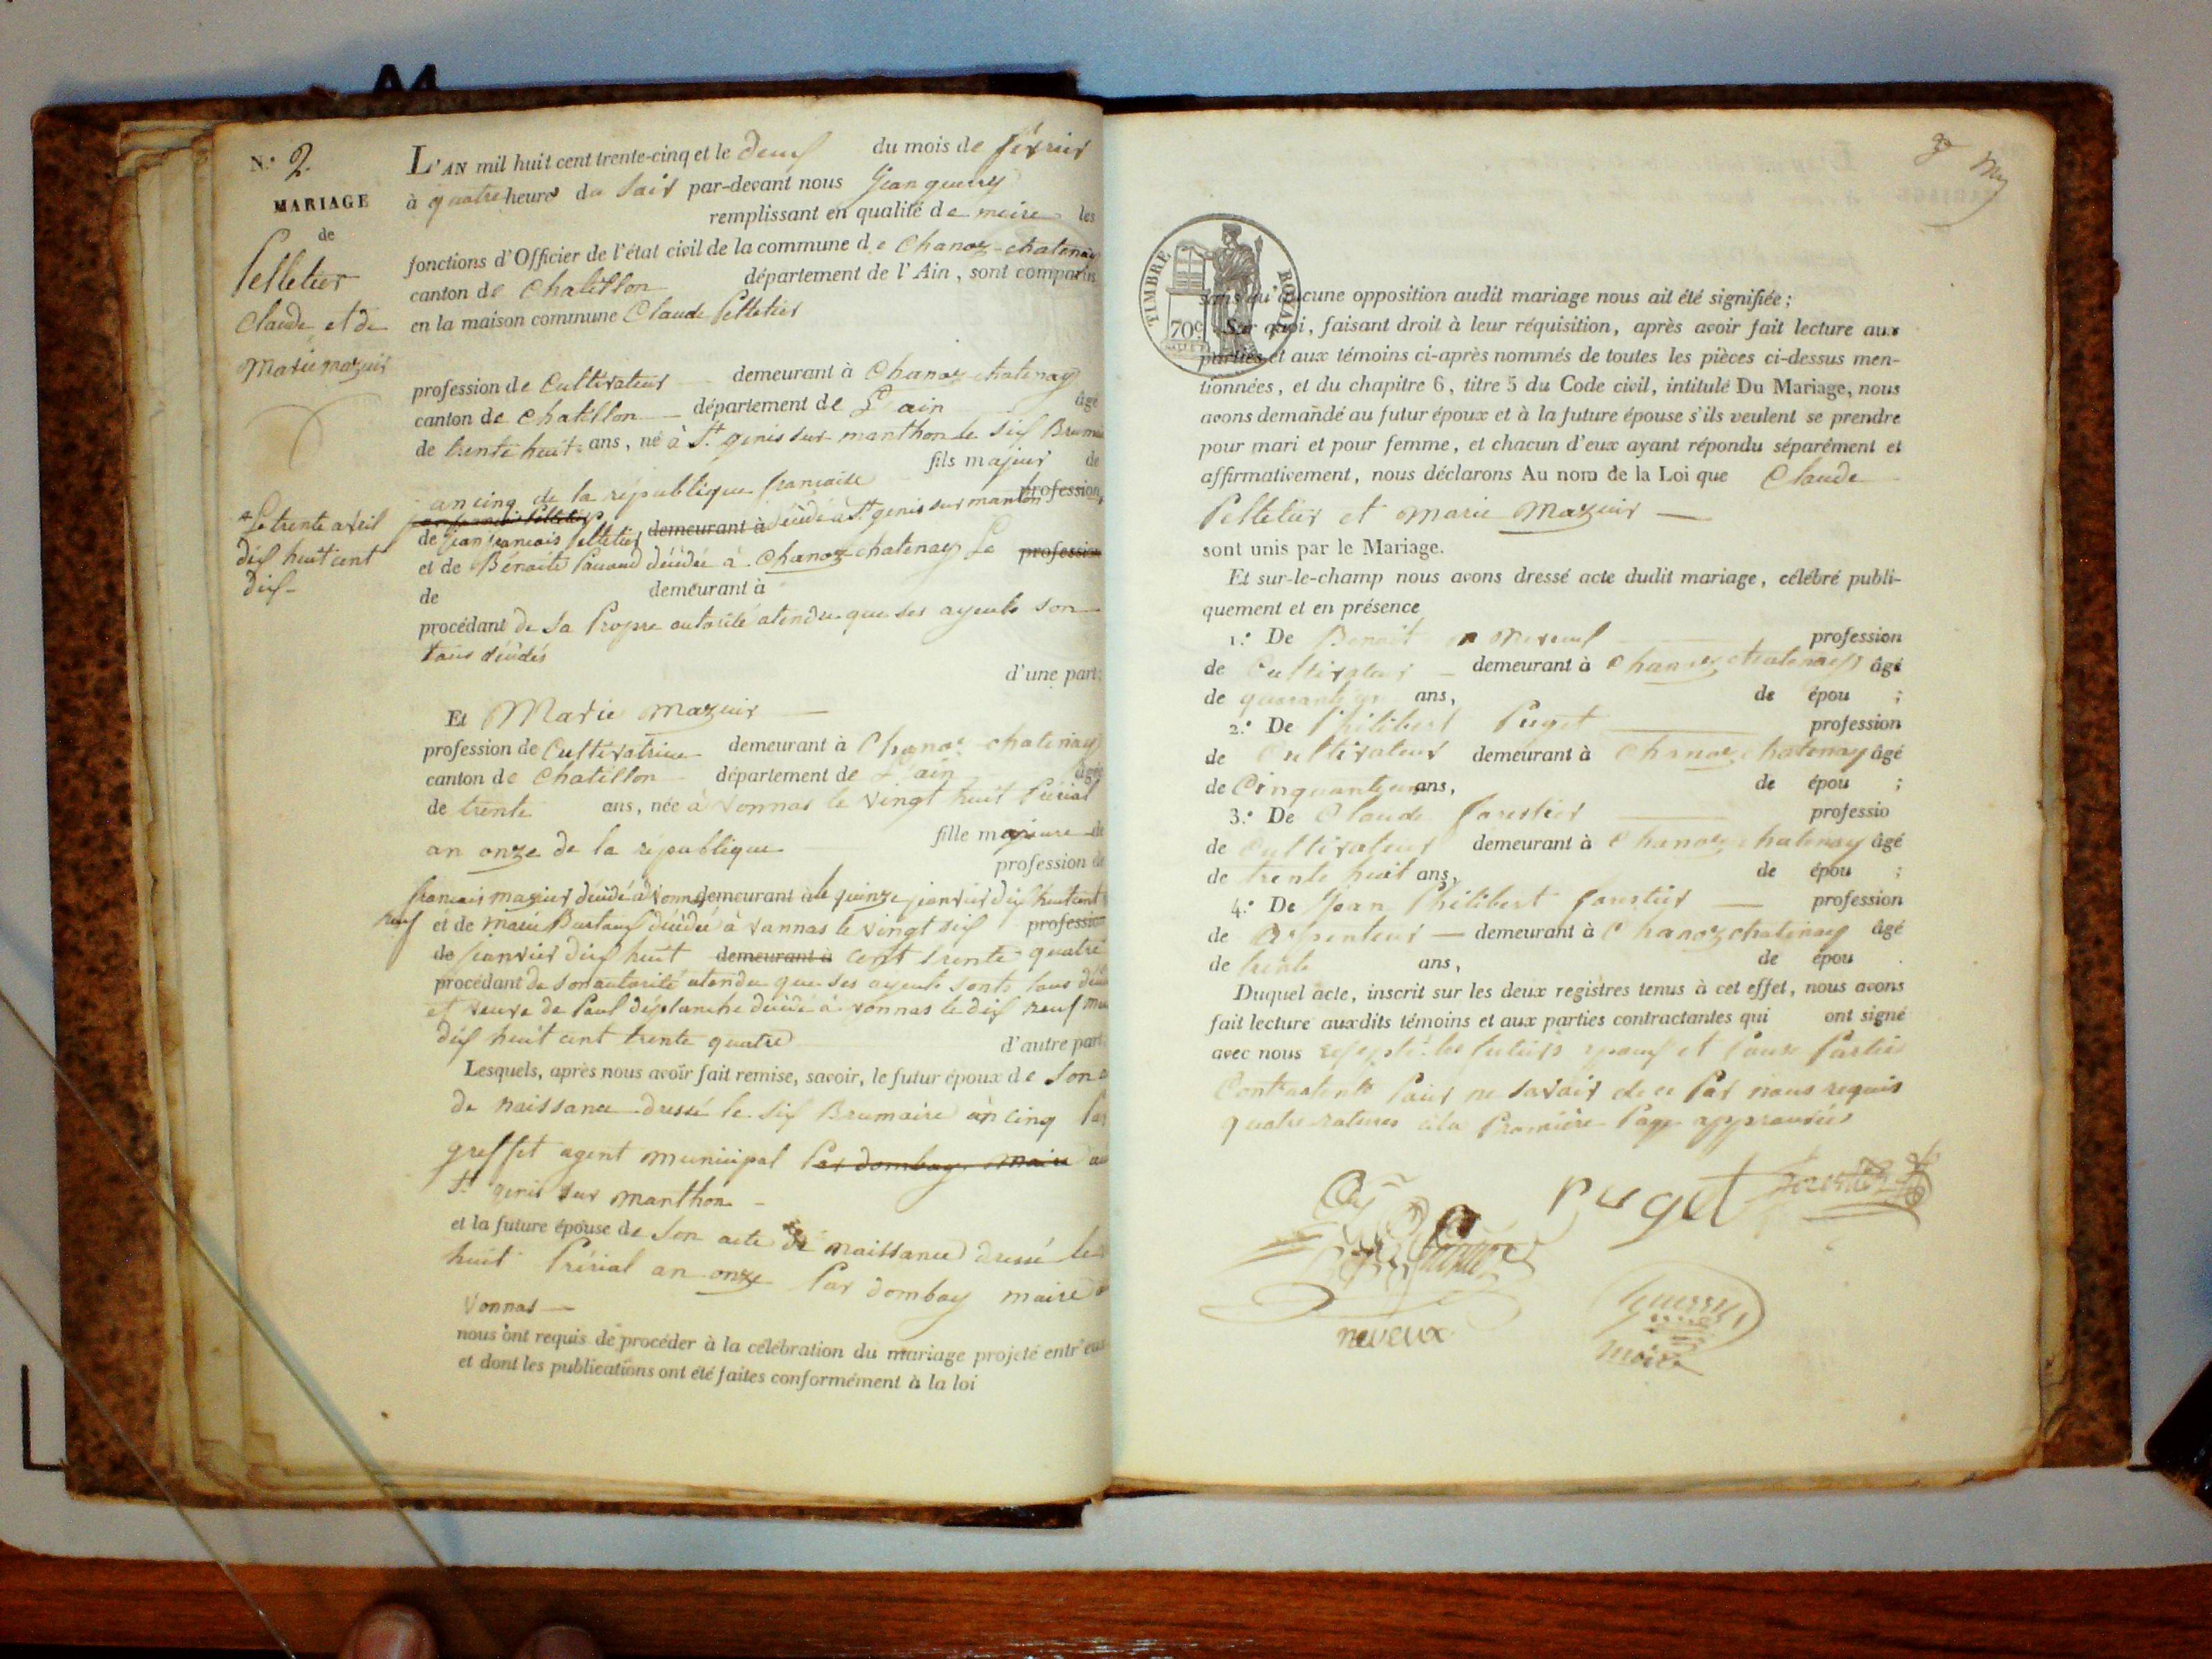 N.° 2.
MARIAGE
de
Pelletier
Claude et de
Marie mazuir
L'AN mil huit cent trente-cinq et le deux du mois de fevrier
à quatre heures du soir par-devant nous Jean guerry
remplissant en qualité de maire les
fonctions d'Officier de l'état civil de la commune de Chanoz-chatenay
canton de Chatillon département de l'Ain, sont comparus
en la maison commune Claude Pelletier
profession de Cultivateur demeurant à Chanoz chatenay
canton de chatillon département de L'ain âgé
de trente huit ans, né à St genis sur manthon le six Brumaire
fils majeur de
an cinq de la république française profession
de jean francois pelletier demeurant à décédé à St genis sur manton
* Le trente avril
dix huit cent
dix
et de Bénoite Pauaud décédée à Chanoz chatenay Le profession
de demeurant à
procédant de sa Propre autorité atendu que ses ayeuls son
tous décédés
d'une part;
Et Marie mazuir
profession de Cultivatrice demeurant à Chanoz chatenay
canton de Chatillon département de L'ain âgée
de trente ans, née à vonnas le vingt huit Prérial
fille majeure de
an onze de la république
profession de
francois mazuir décédé à Vonnas demeurant à le quinze janvier dix huit cent
neuf et de marie décédée à vonnas le vingt six profession
de janvier dix huit demeurant à cent trente quatre
procédant de son autorité atendu que ses ayeuls sonts tous
et veuve de Paul déplanche décédé à vonnas le dix neuf
dix huit cent trente quatre d'autre part.
Lesquels, après nous avoir fait remise, savoir, le futur époux de son
de naissance dressé le six Brumaire an cinq Par
greffet agent municipal Par dombay maire
St genis sur manthon
et la future épouse de son acte de naissance dressé le
huit Prérial an onze Par dombay maire
Vonnas
nous ont requis de procéder à la célébration du mariage projeté entr'eux
et dont les publications ont été faites conformément à la loi
TIMBRE ROYAL
70 c
sans qu'aucune opposition audit mariage nous ait été signifiée;
Sur quoi, faisant droit à leur réquisition, après avoir fait lecture aux
parties et aux témoins ci-après nommés de toutes les pièces ci-dessus men-
tionnées, et du chapitre 6, titre 5 du Code civil, intitulé Du Mariage, nous
avons demandé au futur époux et à la future épouse s'ils veulent se prendre
pour mari et pour femme, et chacun d'eux ayant répondu séparément et
affirmativement, nous déclarons Au nom de la Loi que Claude
Pelletier et Marie Mazuir
sont unis par le Mariage.
Et sur-le-champ nous avons dressé acte dudit mariage, célébré publi-
quement et en présence
1.° De Benoit profession
de Cultivateur demeurant à Chanoz chatenay âgé
de ans, de épou ;
2.° De Philibert Puget profession
de Cultivateur demeurant à Chanoz chatenay âgé
de Cinquante ans, de épou ;
3.° De Claude forestier professio
de Cultivateur demeurant à Chanoz chatenay âgé
de trente huit ans, de épou ;
4.° De Jean Philibert forestier profession
de Arpenteur demeurant à Chanoz chatenay âgé
de trente ans, de épou .
Duquel acte, inscrit sur les deux registres tenus à cet effet, nous avons
fait lecture auxdits témoins et aux parties contractantes qui ont signé
avec nous les futurs epoux et Parties
Contractents Pour ne savoir de ce Par nous requis
quatre ratures à la Première Page approuvées
puget
neveux
Guerry
maire